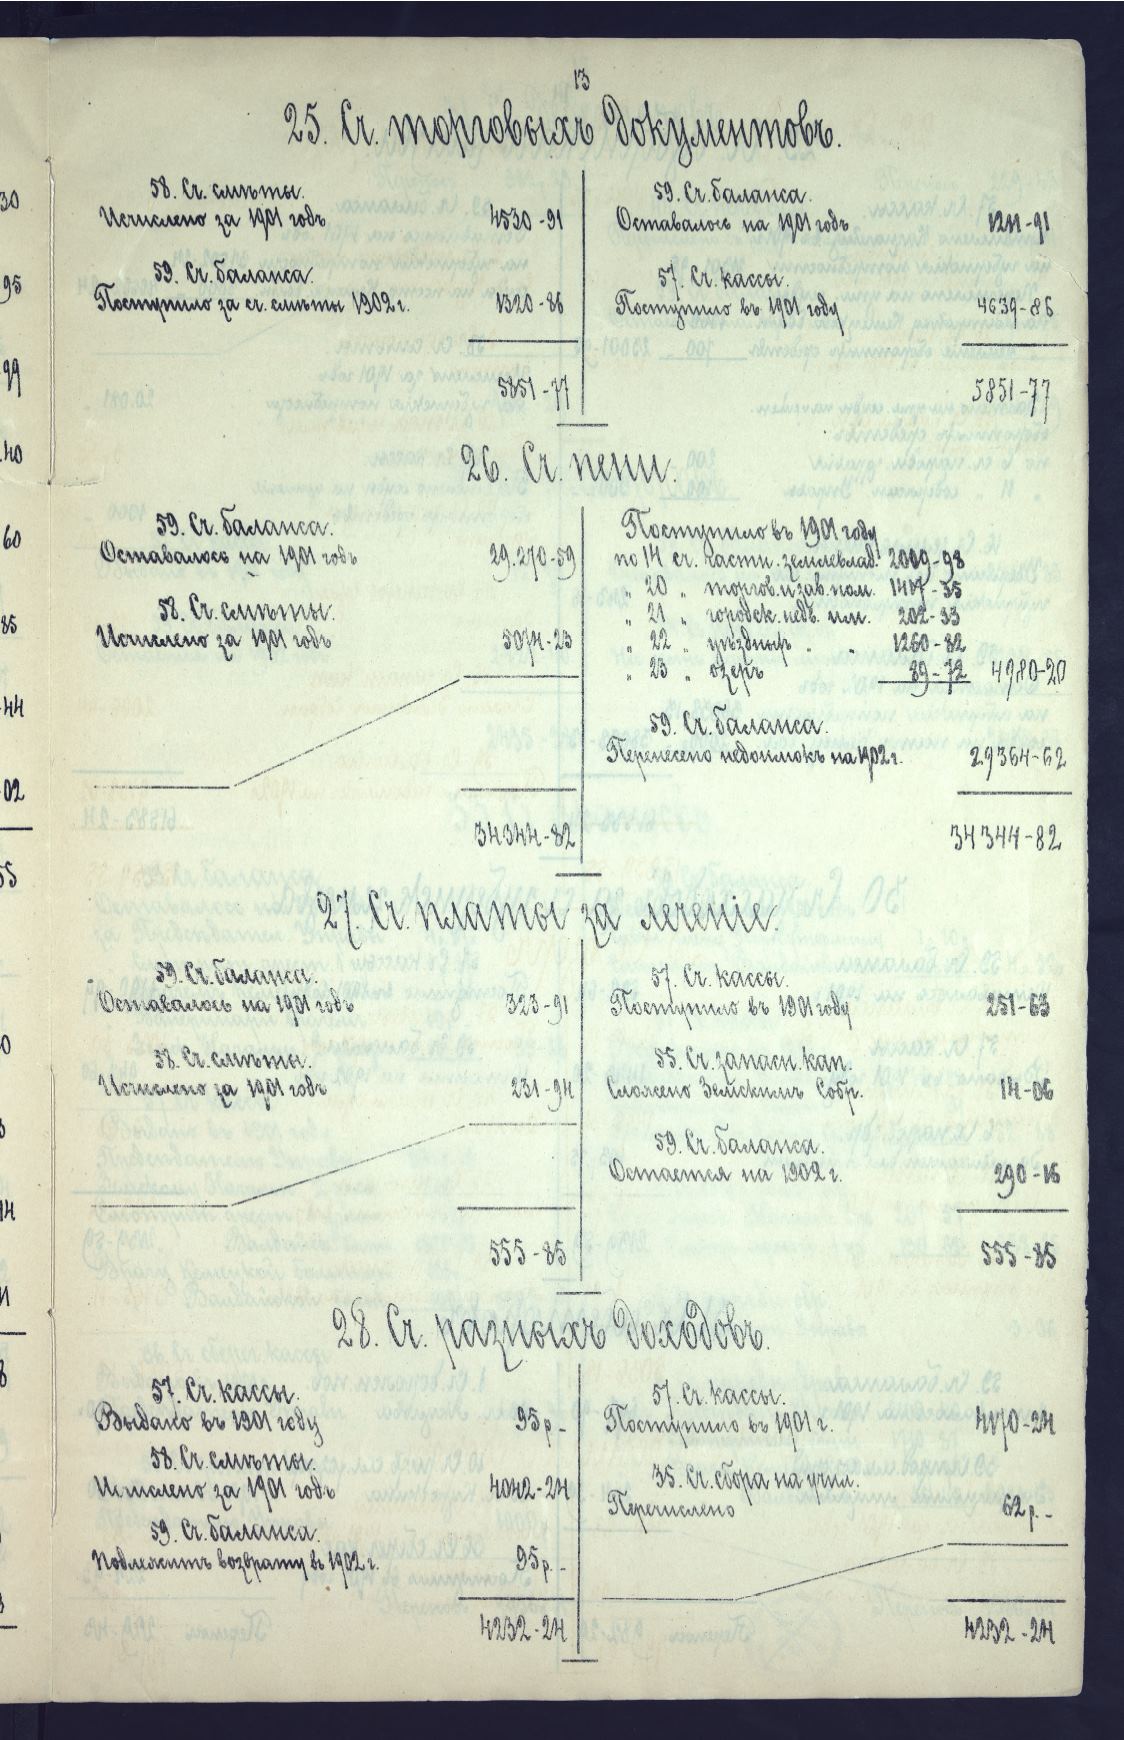 13
25. Сч. торговыхъ документовъ.
58. Сч. смѣты.
Исчислено за 1901 годъ 4530-91
59. Сч. баланса.
Поступило за сч. смѣты 1902 г. 1320-86
5851-77
59. Сч. баланса.
Оставалось на 1901 годъ 1211-91
57. Сч. кассы.
Поступило въ 1901 году 4639-86
5851-77
26. Сч. пени.
59. Сч. баланса.
Оставалось на 1901 годъ 29.270-59
58. Сч. смѣты.
Исчислено за 1901 годъ 5074-23
34344-82
Поступило въ 1901 году
по 14 сч. частн. землевлад. 2009-98
„ 20 „ торгов. и зав. пом. 1407-35
„ 21 „ городск. недв. им. 202-33
„ 22 „ уѣздныхъ „ „ 1260-82
„ 23 „ озеръ 99-72 4980-20
59. Сч. баланса.
Перенесено недоимокъ на 1902 г. 29364-62
34344-82
27. Сч. платы за леченіе.
59. Сч. баланса.
Оставалось на 1901 годъ 323-91
58. Сч. смѣты.
Исчислено за 1901 годъ 231-94
555-85
57. Сч. кассы.
Поступило въ 1901 году 251-63
55. Сч. запасн. кап.
Сложено Земскимъ Собр. 14-06
59. Сч. баланса.
Остается на 1902 г. 290-16
555-85
28. Сч. разныхъ доходовъ.
57. Сч. кассы.
Выдано въ 1901 году 95 р. -
58. Сч. смѣты.
Исчислено за 1901 годъ 4042-24
59. Сч. баланса.
Подлежитъ возврату въ 1902 г. 95 р. -
4232-24
57. Сч. кассы.
Поступило въ 1901 г. 4170-24
35. Сч. сбора на учил.
Перечислено 62 р. -
4232-24